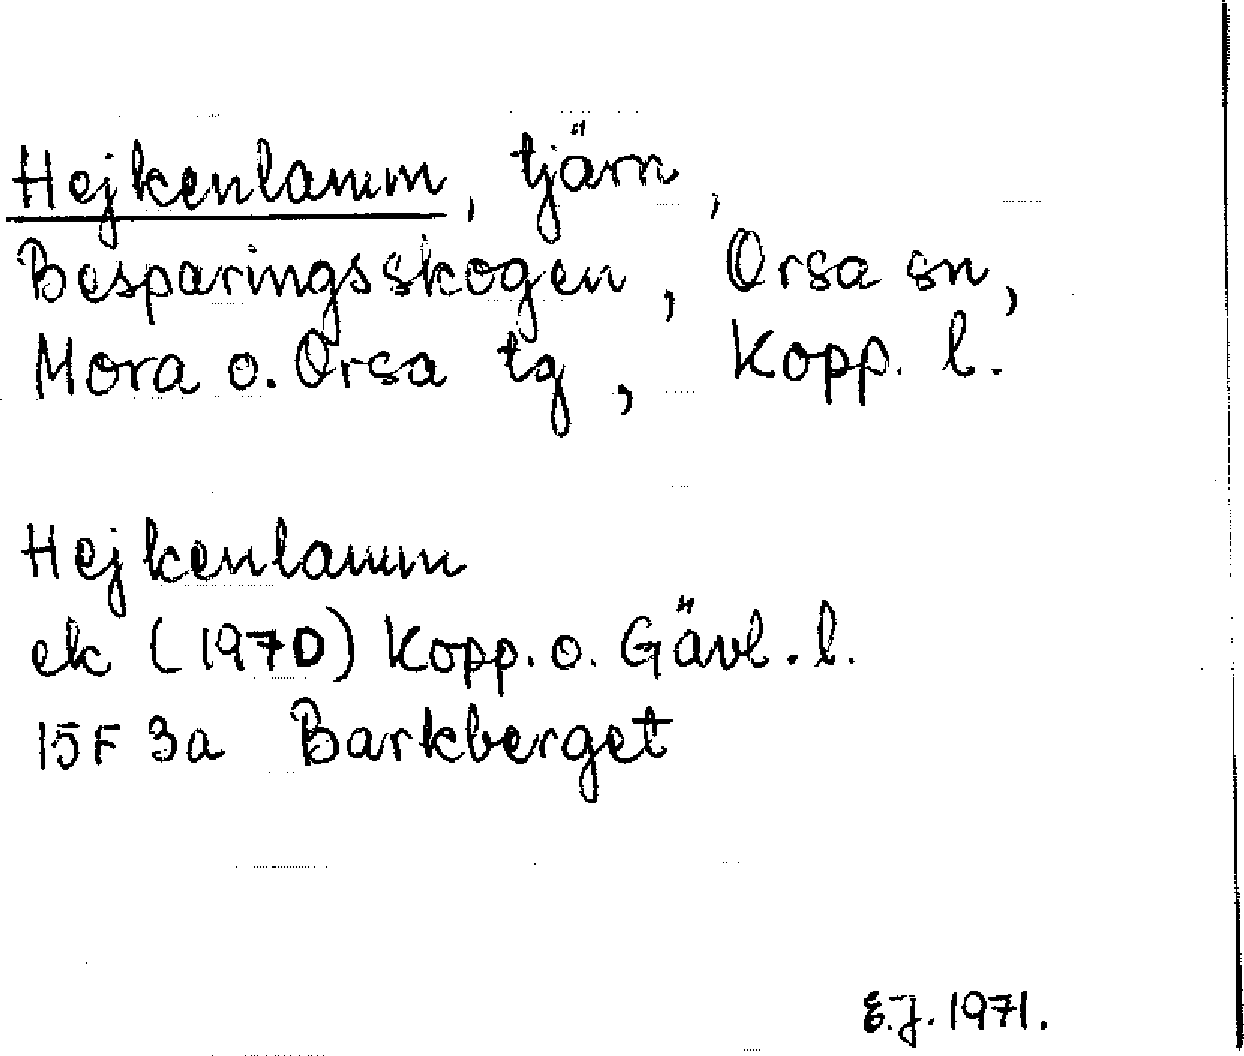 Hejkenlamm, tjärn,
Besparingsskogen, Orsa sn,
Mora o. Orsa tg, Kopp. l.
Hejkenlamm
ek (1970) Kopp. o. Gävl. l.
15F 3a Barkberget
E.J. 1971.